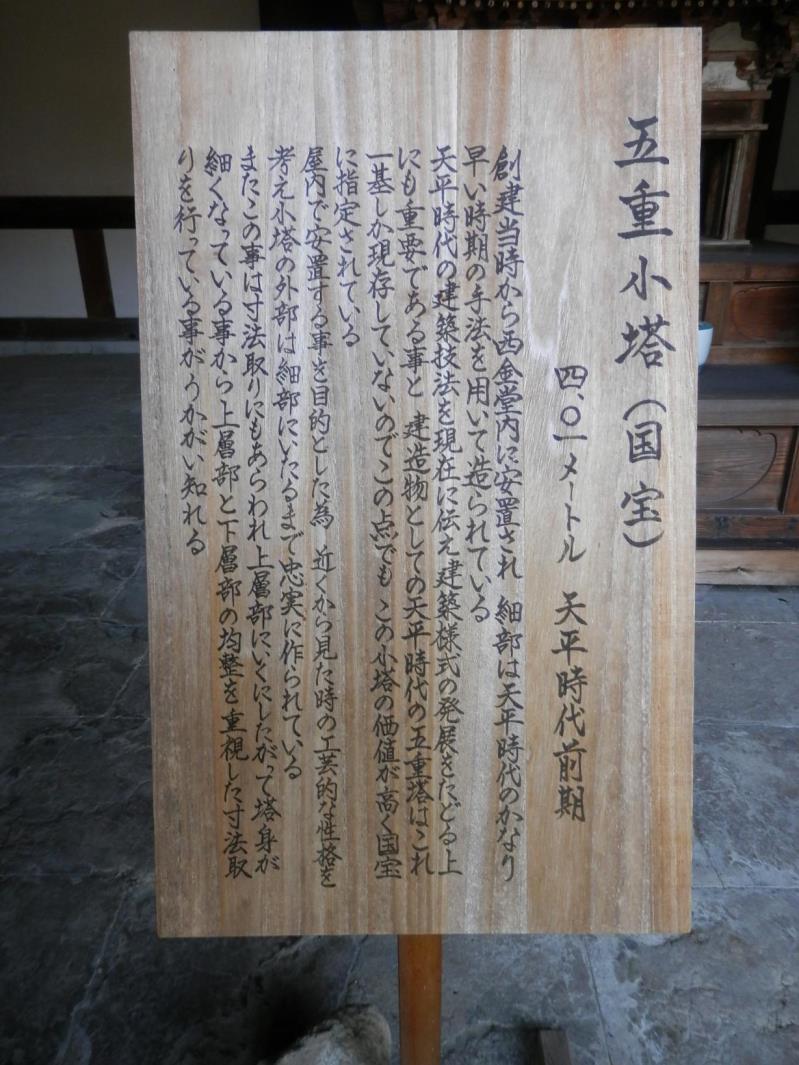 五重小塔（国宝）
四、〇一メートル 天平時代前期
創建当時から西金堂内に安置され 細部は天平時代のかなり
早い時期の手法を用いて造られている
天平時代の建築技法を現在に伝え建築様式の発展をたどる上
にも重要である事と 建造物としての天平時代の五重塔はこれ
一基しか現存していないのでこの点でも この小塔の価値が高く国宝
に指定されている
屋内で安置する事を目的とした為 近くから見た時の工芸的な性格を
考え小塔の外部は細部にいたるまで忠実に作られている
またこの事は寸法取りにもあらわれ上層部にいくにしたがって塔身が
細くなっている事から上層部と下層部の均整を重視した寸法取
りを行っている事がうかがい知れる